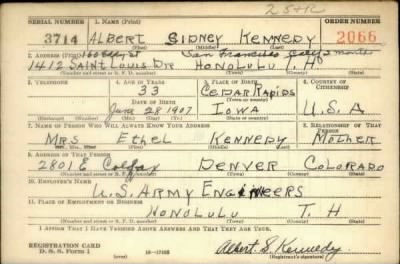 25+K
SERIAL NUMBER 1. NAME (Print) ORDER NUMBER
3714 ALBERT SIDNEY KENNEDY 2066
2. ADDRESS (Print) San Francisco
1412 SAINT LOUIS DR HONOLULU, T.H
3. TELEPHONE 4. AGE IN YEARS 5. PLACE OF BIRTH 6. COUNTRY OF CITIZENSHIP
33 CEDAR RAPIDS
DATE OF BIRTH (Town or county)
June 28 1907 IOWA U.S.A
7. NAME OF PERSON WHO WILL ALWAYS KNOW YOUR ADDRESS 8. RELATIONSHIP OF THAT PERSON
MRS ETHEL KENNEDY MOTHER
(Mr., Mrs., Miss) (First) (Middle) (Last)
9. ADDRESS OF THAT PERSON
2801 E Colfax DENVER COLORADO
(Number and street or R. F. D. number) (Town) (County) (State)
10. EMPLOYER'S NAME
U.S. ARMY ENGINEERS
11. PLACE OF EMPLOYMENT OR BUSINESS
HONOLULU T. H
(Number and street or R. F. D. number) (Town) (County) (State)
I AFFIRM THAT I HAVE VERIFIED ABOVE ANSWERS AND THAT THEY ARE TRUE.
REGISTRATION CARD Albert S. Kennedy
D. S. S. Form 1 (over) 16—17105 (Registrant's signature)